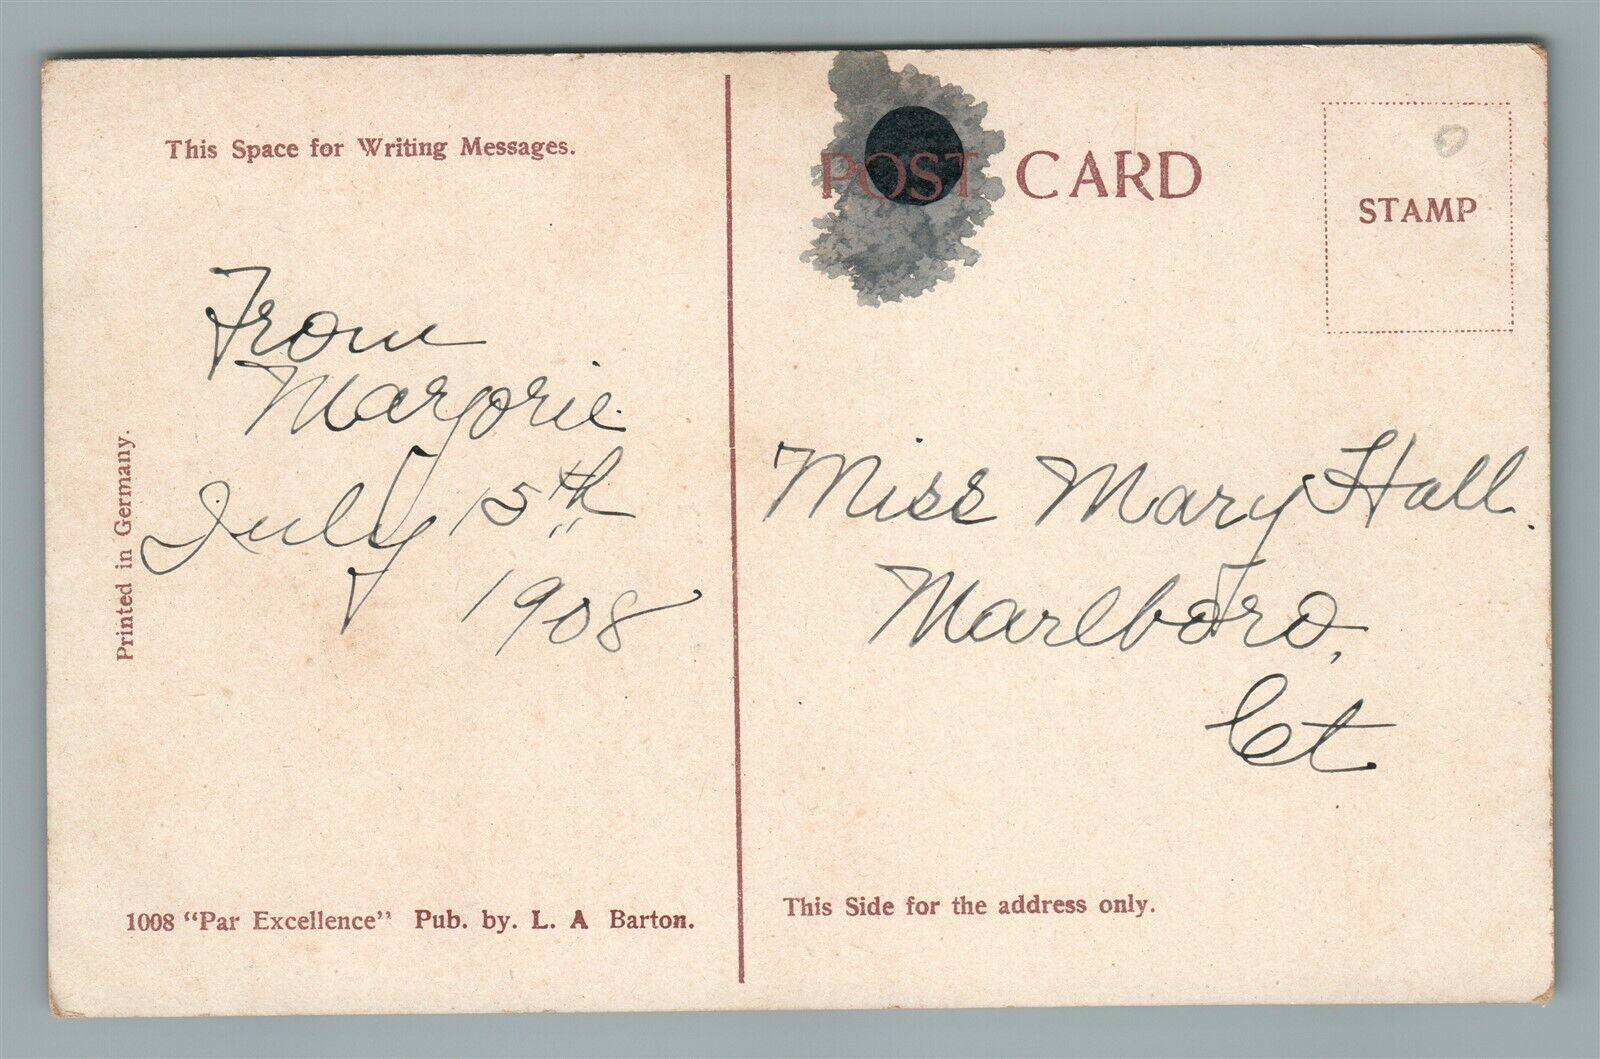 This Space for Writing Messages.
POST CARD
STAMP
From
Marjorie
July 15th
1908
Miss Mary Hall.
Marlboro,
Ct.
Printed in Germany.
1008 "Par Excellence" Pub. by. L. A Barton.
This Side for the address only.